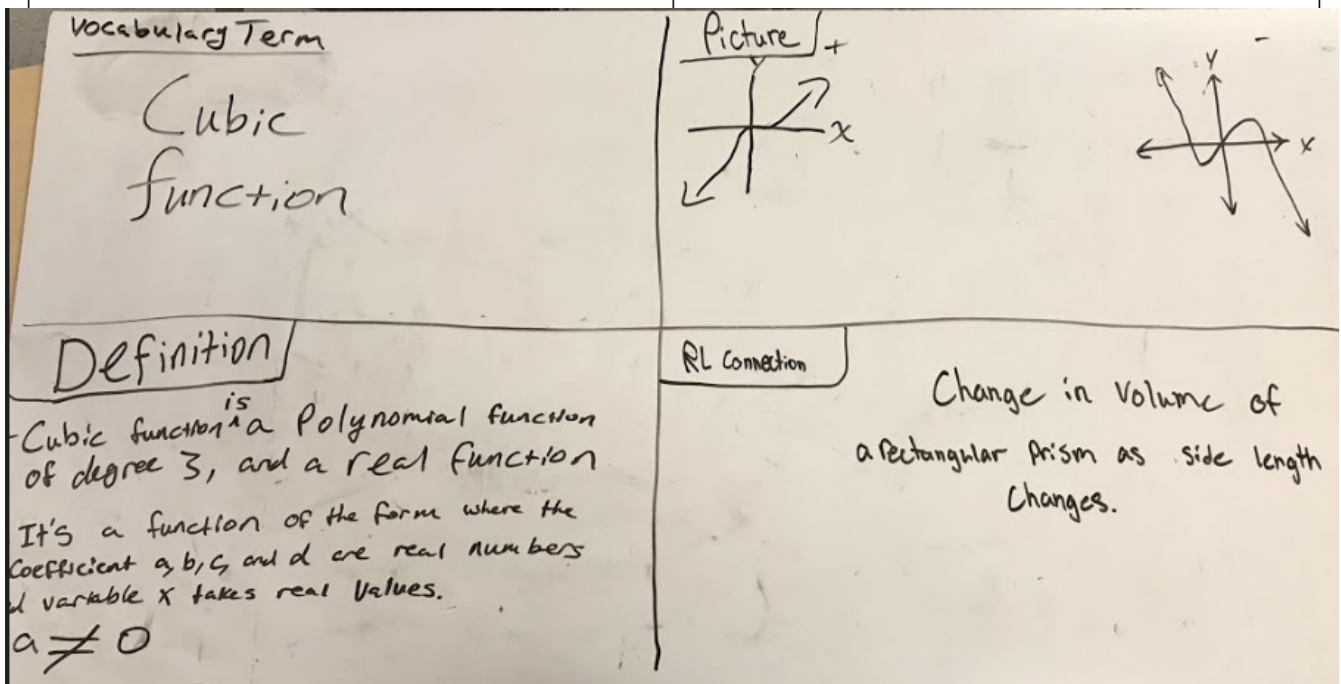 Vocabulary Term
Cubic
function
Picture
+
-
Y
X
Y
X
Definition
- Cubic function is a Polynomial function
of degree 3, and a real function
It's a function of the form where the
Coefficient a, b, c, and d are real numbers
variable x takes real values.
a ≠ 0
RL Connection
Change in Volume of
a rectangular Prism as side length
Changes.